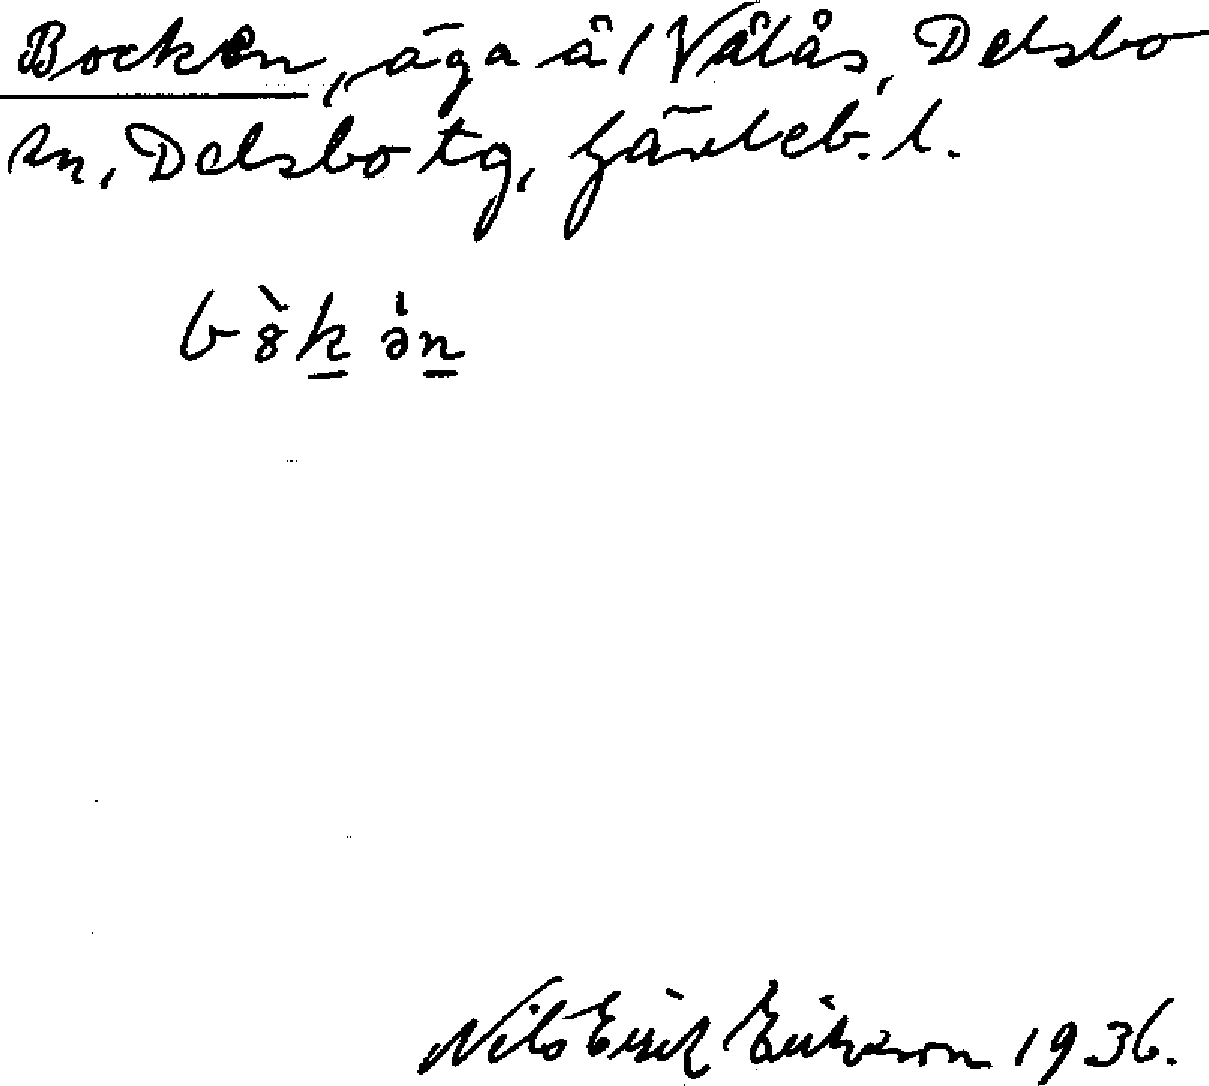 Bocken, äga å / Vålås, Delsbo
sn, Delsbo tg, Gävleb. l.
Nils Erik Erikson 1936.